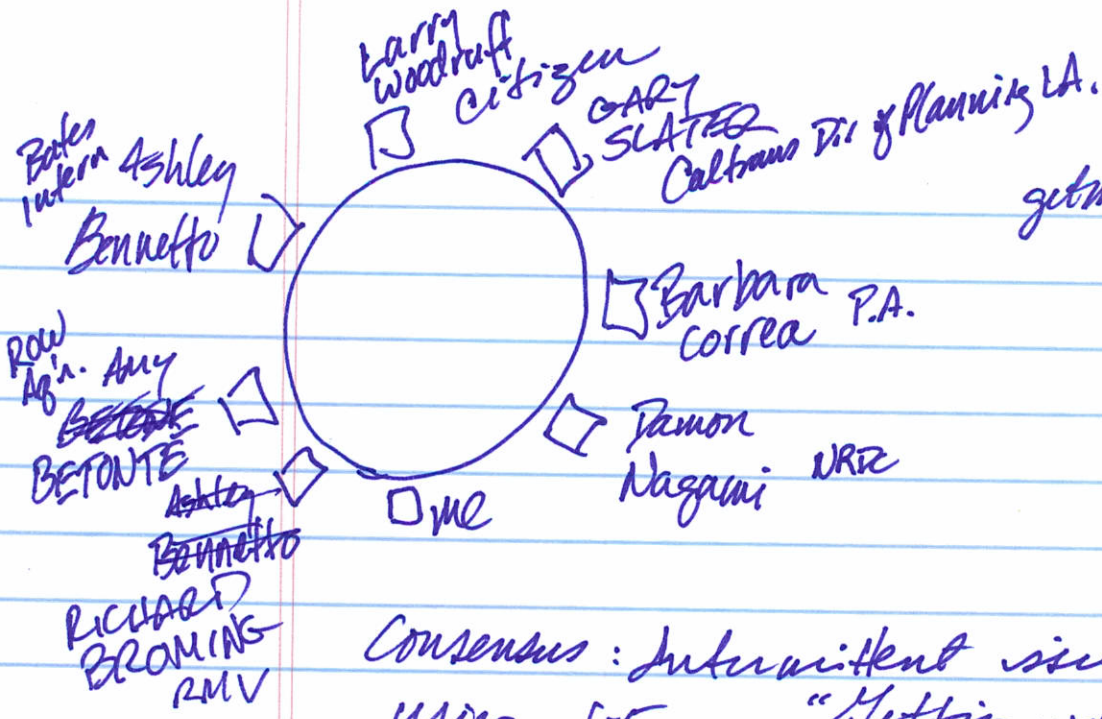 Larry
Woodruff
Citizen
GARY
SLATER
Caltrans Dir of Planning LA.
Bates
intern Ashley
Bennetto
Barbara
Correa P.A.
ROW
Aq'n. AMY
BETONTE
Damon
Nagami NRDC
me
Ashley
Bennetto
RICHARD
BROMING
RMV
Consensus : Intermittent